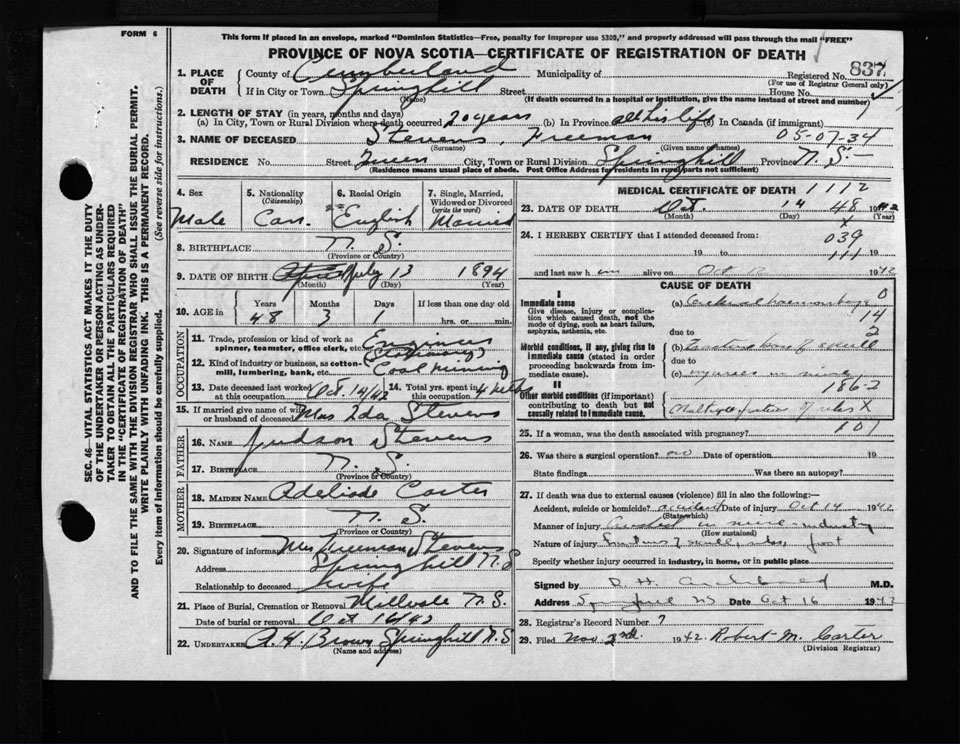 FORM 6
This form if placed in an envelope, marked "Dominion Statistics—Free, penalty for improper use $300," and properly addressed will pass through the mail "FREE"
PROVINCE OF NOVA SCOTIA—CERTIFICATE OF REGISTRATION OF DEATH
SEC. 46—VITAL STATISTICS ACT MAKES IT THE DUTY
OF THE UNDERTAKER OR PERSON ACTING AS UNDER-
TAKER TO OBTAIN ALL THE PARTICULARS REQUIRED
IN THE "CERTIFICATE OF REGISTRATION OF DEATH"
AND TO FILE THE SAME WITH THE DIVISION REGISTRAR WHO SHALL ISSUE THE BURIAL PERMIT.
WRITE PLAINLY WITH UNFADING INK. THIS IS A PERMANENT RECORD.
Every item of Information should be carefully supplied. (See reverse side for instructions.)
1. PLACE OF DEATH County of Cumberland Municipality of Registered No. 837
(For use of Registrar General only)
If in City or Town Springhill Street House No.
(Name) (If death occurred in a hospital or institution, give the name instead of street and number)
2. LENGTH OF STAY (in years, months and days)
(a) In City, Town or Rural Division where death occurred 20 years (b) In Province all his life (c) In Canada (if immigrant)
3. NAME OF DECEASED Stevens, Freeman 05-07-34
(Surname) (Given name or names)
RESIDENCE No. Street Queen City, Town or Rural Division Springhill Province N. S.—
(Residence means usual place of abode. Post Office Address for residents in rural parts not sufficient)
4. Sex Male
5. Nationality (Citizenship) Can.
6. Racial Origin English
7. Single, Married, Widowed or Divorced (write the word) Married
8. BIRTHPLACE N. S.
(Province or Country)
9. DATE OF BIRTH July 13 1894
(Month) (Day) (Year)
10. AGE Years 48 Months 3 Days 1 If less than one day old hrs. or min.
OCCUPATION
11. Trade, profession or kind of work as spinner, teamster, office clerk, etc. Engineer
(Stationary)
12. Kind of industry or business, as cotton-mill, lumbering, bank, etc. Coal mining
13. Date deceased last worked at this occupation Oct. 14/42 14. Total yrs. spent in this occupation 4
15. If married give name of wife or husband of deceased Mrs Ida Stevens
FATHER
16. NAME Judson Stevens
17. BIRTHPLACE N. S.
(Province or Country)
MOTHER
18. MAIDEN NAME Adeliade Carter
19. BIRTHPLACE N. S.
(Province or Country)
20. Signature of informant Mrs Freeman Stevens
Address Springhill N. S
Relationship to deceased wife
21. Place of Burial, Cremation or Removal Millvale N. S.
Date of burial or removal Oct 16/42
22. UNDERTAKER A. H. Brown Springhill N. S
(Name and address)
MEDICAL CERTIFICATE OF DEATH 1112
23. DATE OF DEATH Oct. 14 48 1942
(Month) (Day) (Year)
24. I HEREBY CERTIFY that I attended deceased from: x
039
19 to 111 19
and last saw him alive on Oct 1942
CAUSE OF DEATH
I
Immediate cause (a) Cerebral hemorrhage 0
Give disease, injury or complication which caused death, not the mode of dying, such as heart failure, asphyxia, asthenia, etc. 14
due to 2
Morbid conditions, if any, giving rise to immediate cause (stated in order proceeding backwards from immediate cause). (b) skull
due to
(c) injuries in mine
186-2
II
Other morbid conditions (if important) contributing to death but not causally related to immediate cause. Multiple of ribs X
107
25. If a woman, was the death associated with pregnancy?
26. Was there a surgical operation? no Date of operation 19
State findings Was there an autopsy?
27. If death was due to external causes (violence) fill in also the following:—
Accident, suicide or homicide? accident Date of injury Oct 14 1942
(State which)
Manner of injury crushed in mine—industry
(How sustained)
Nature of injury skull, ribs, foot
Specify whether injury occurred in industry, in home, or in public place
Signed by D. H. Archibald M.D.
Address Springhill NS Date Oct 16 1942
28. Registrar's Record Number 7
29. Filed Nov. 2nd. 1942 Robert M. Carter
(Division Registrar)